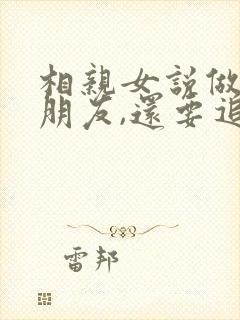 相親女說做
朋友,還要追
雷邦